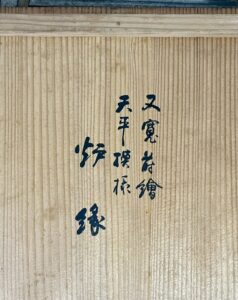 又寛蒔繪
天平模様
炉縁